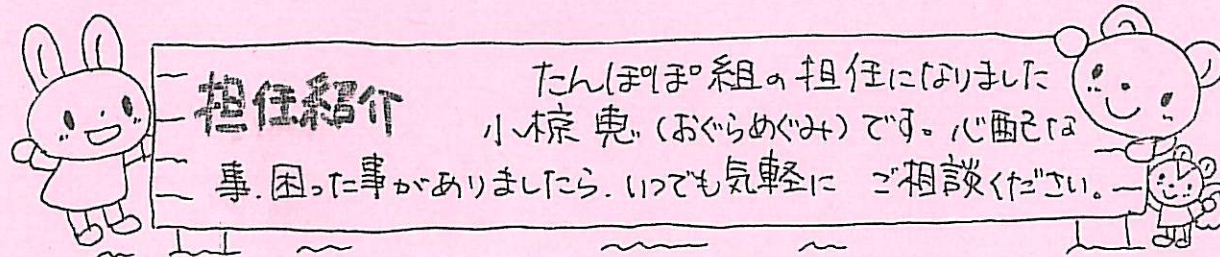 担任紹介
たんぽぽ組の担任になりました
小椋 恵（おぐらめぐみ）です。心配な
事、困った事がありましたら、いつでも気軽に ご相談ください。